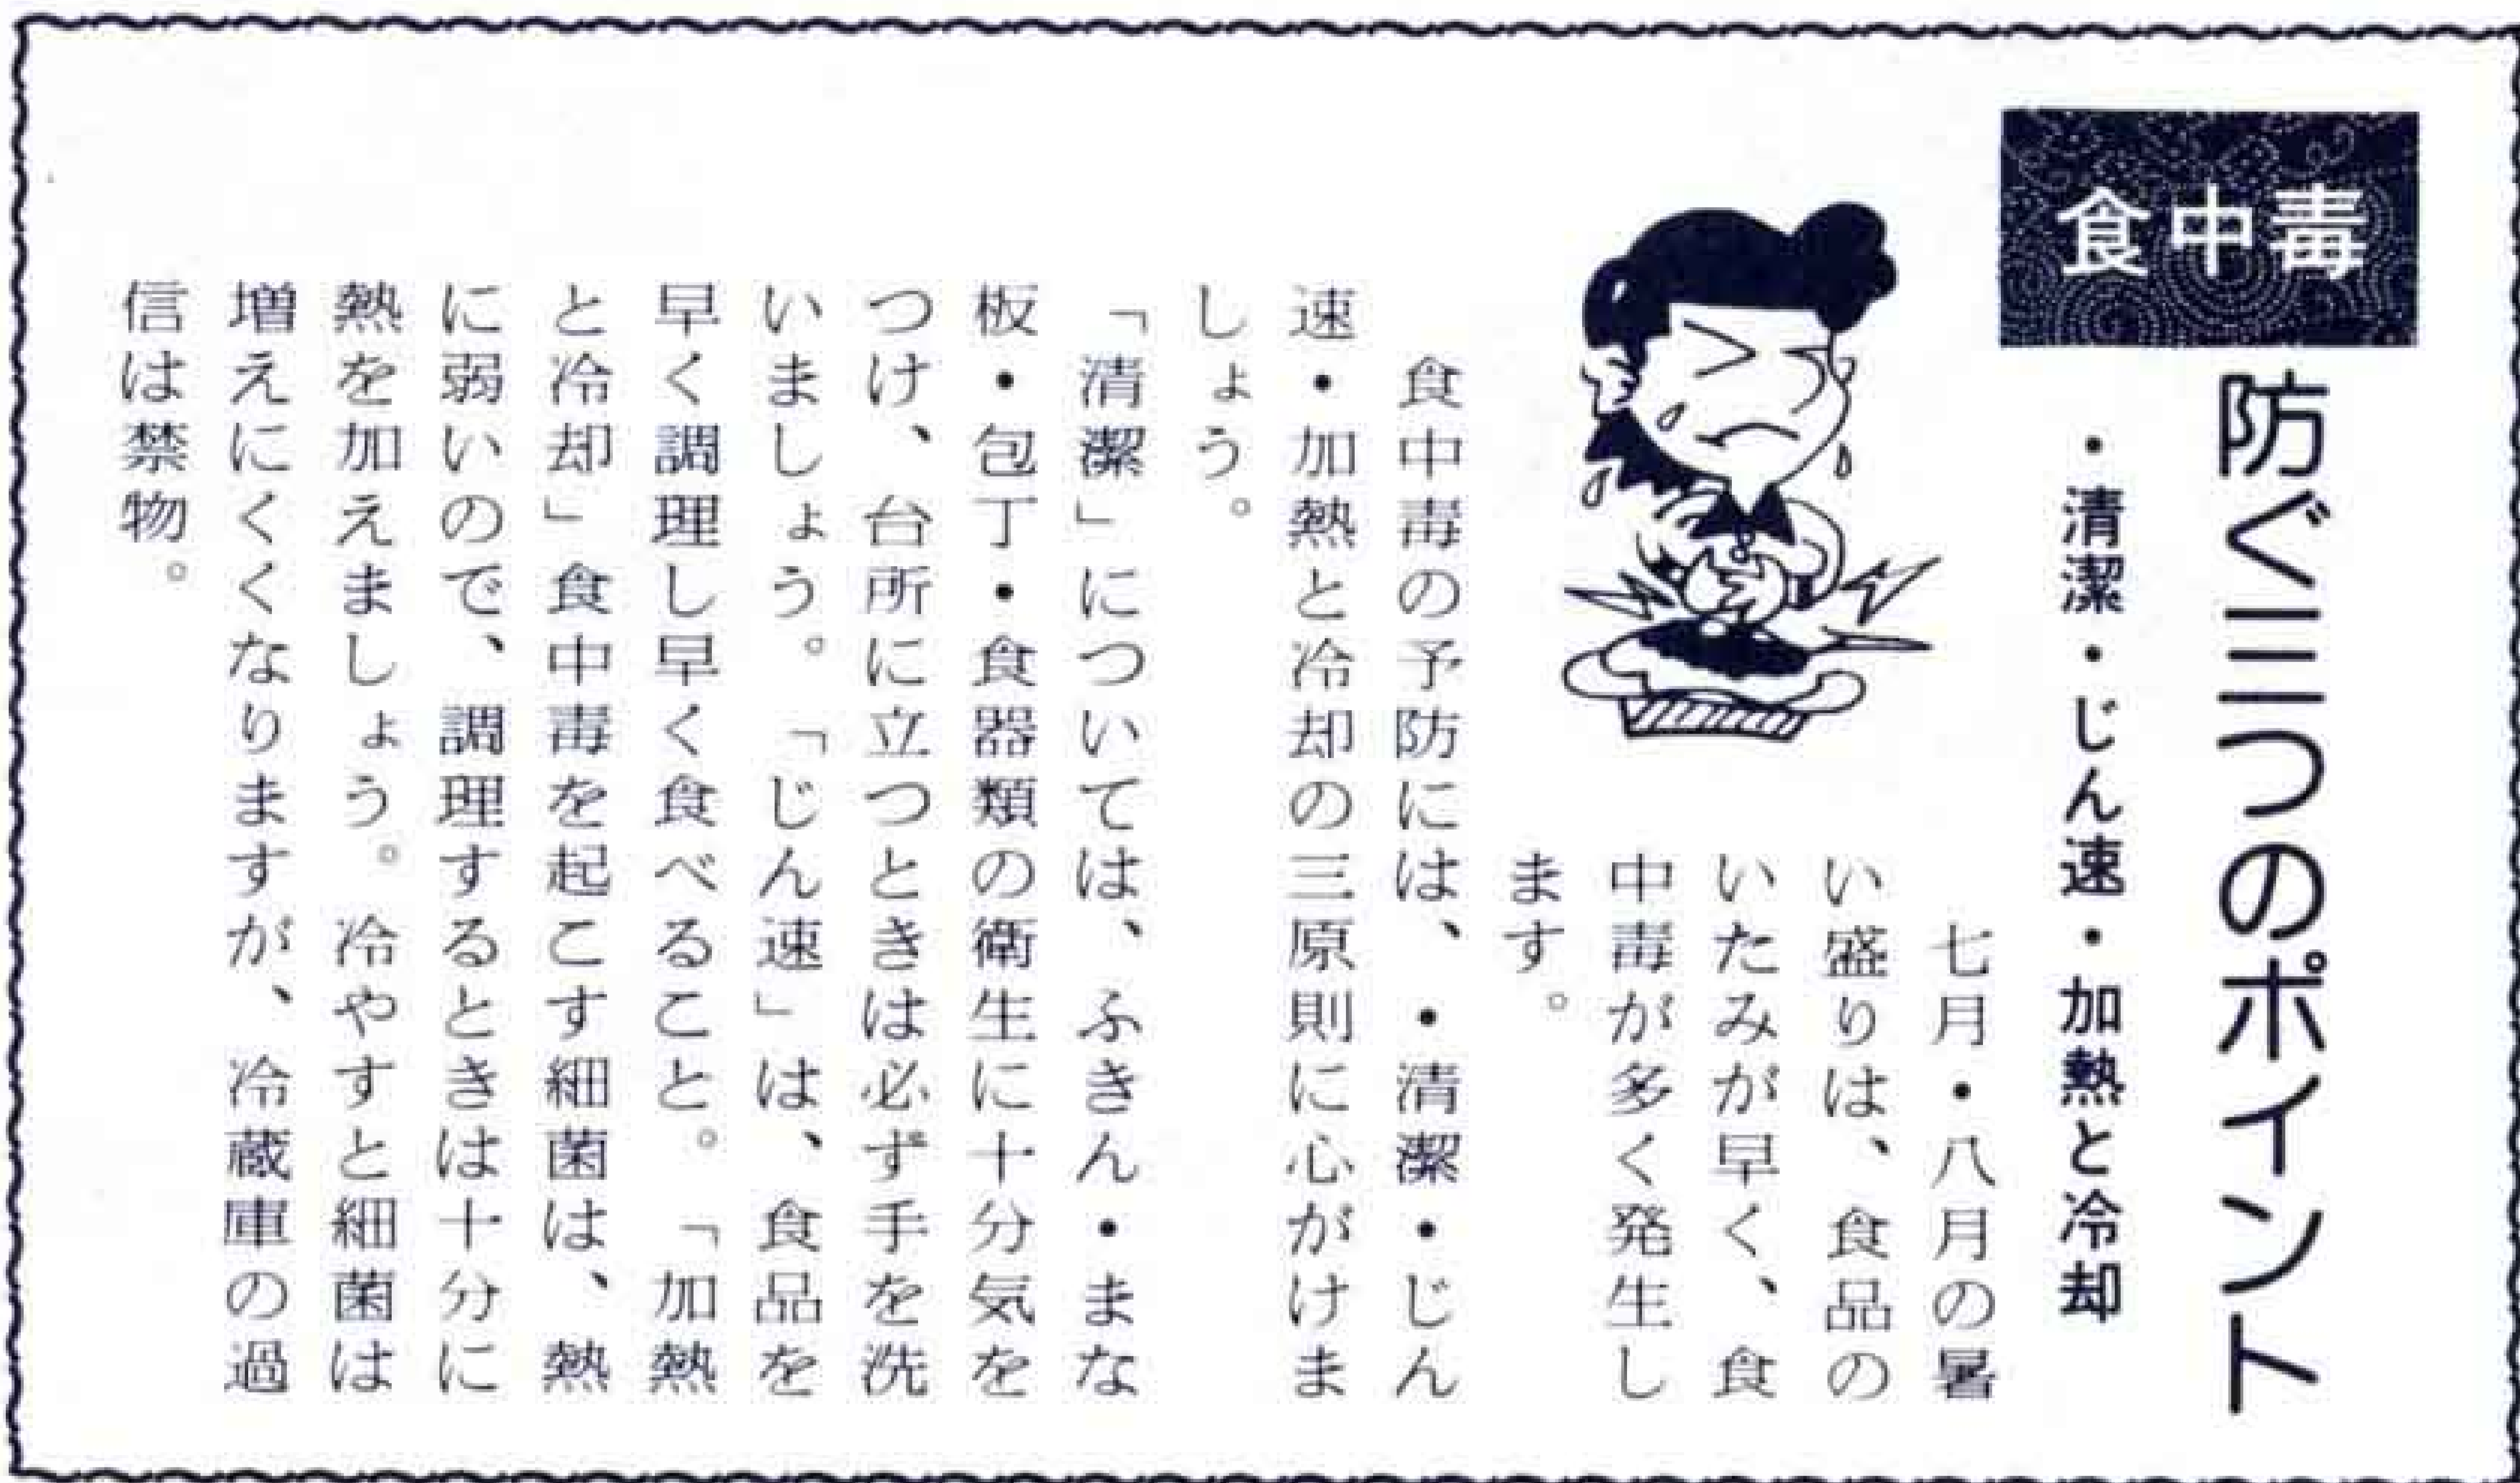 食中毒
防ぐ三つのポイント
・清潔・じん速・加熱と冷却
七月・八月の暑
い盛りは、食品の
いたみが早く、食
中毒が多く発生し
ます。
食中毒の予防には、・清潔・じん
速・加熱と冷却の三原則に心がけま
しょう。
「清潔」については、ふきん・まな
板・包丁・食器類の衛生に十分気を
つけ、台所に立つときは必ず手を洗
いましょう。「じん速」は、食品を
早く調理し早く食べること。「加熱
と冷却」食中毒を起こす細菌は、熱
に弱いので、調理するときは十分に
熱を加えましょう。冷やすと細菌は
増えにくくなりますが、冷蔵庫の過
信は禁物。